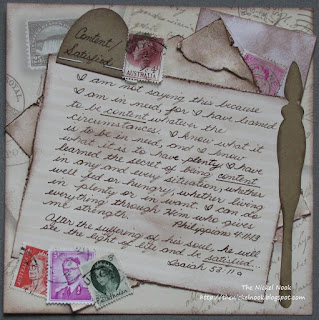 Content/
Satisfied
AUSTRALIA
I am not saying this because
I am in need, for I have learned
to be content whatever the
circumstances. I know what it
is to be in need, and I know
what it is to have plenty. I have
learned the secret of being content
in any and every situation, whether
well fed or hungry, whether living
in plenty or in want. I can do
everything through Him who gives
me strength.
Philippians 4:11-13
After the suffering of his soul, he will
see the light of life and be satisfied.
Isaiah 53:11a
The Nickel Nook
http://thenickelnook.blogspot.com